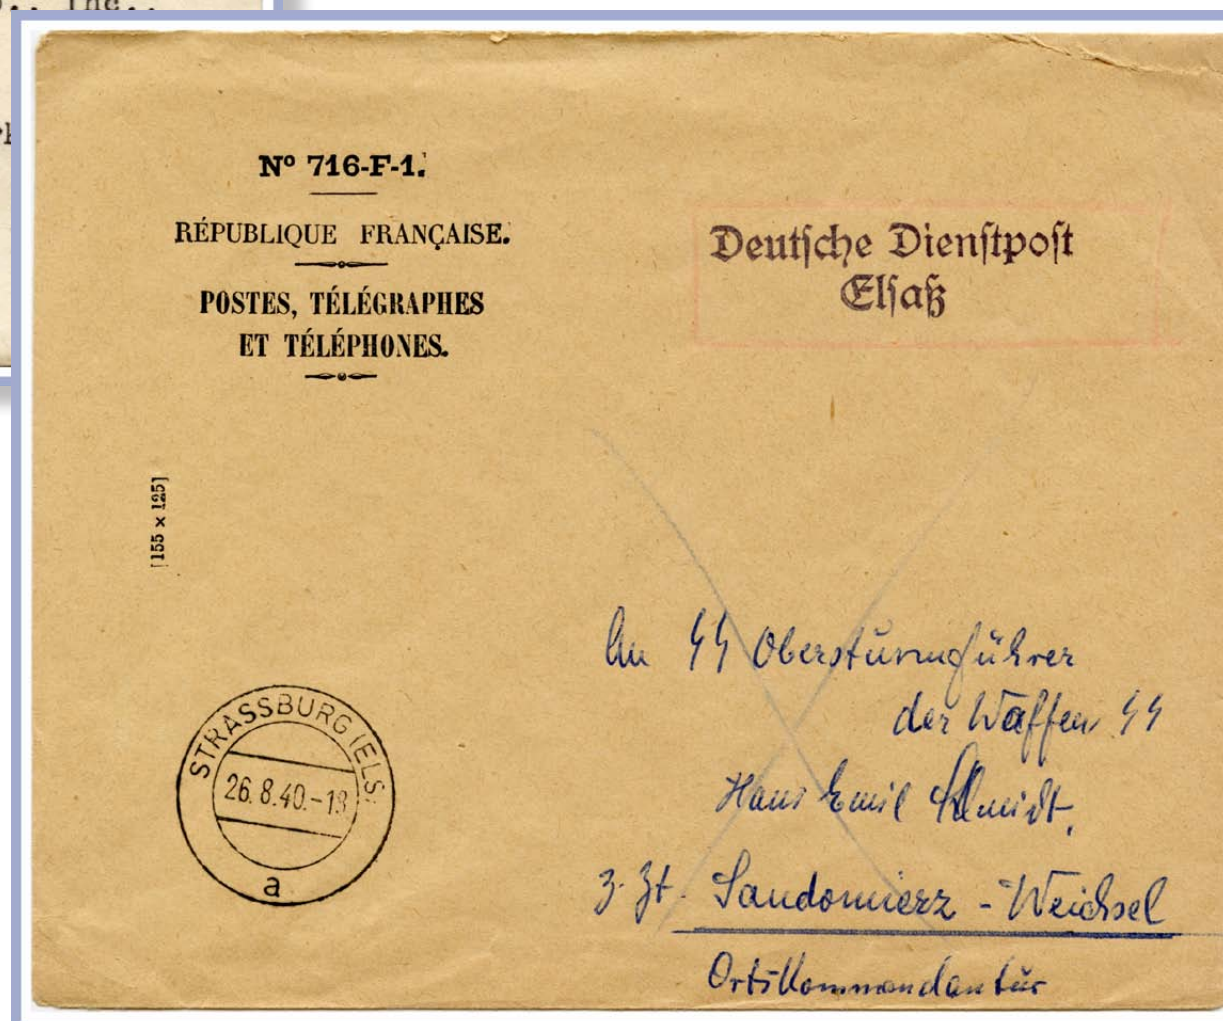 Inc..
Nº 716-F-1.
RÉPUBLIQUE FRANÇAISE.
POSTES, TÉLÉGRAPHES
ET TÉLÉPHONES.
Deutsche Dienstpost
Elsaß
[155 x 125]
STRASSBURG (ELS)
26.8.40.-18
a
An SS Obersturmführer
der Waffen SS
Hans Emil Schmidt,
z. Zt. Sandomierz - Weichsel
Ortskommandantur